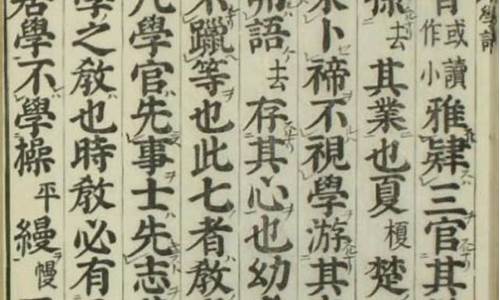 學記
宵或讀作小雅肄三官其
孫去其業也夏榎楚
未卜禘不視學游其
弗語去存其心也幼
不躐等也此七者教
凡學官先事士先志
學之教也時教必有
居學不學操平縵慢